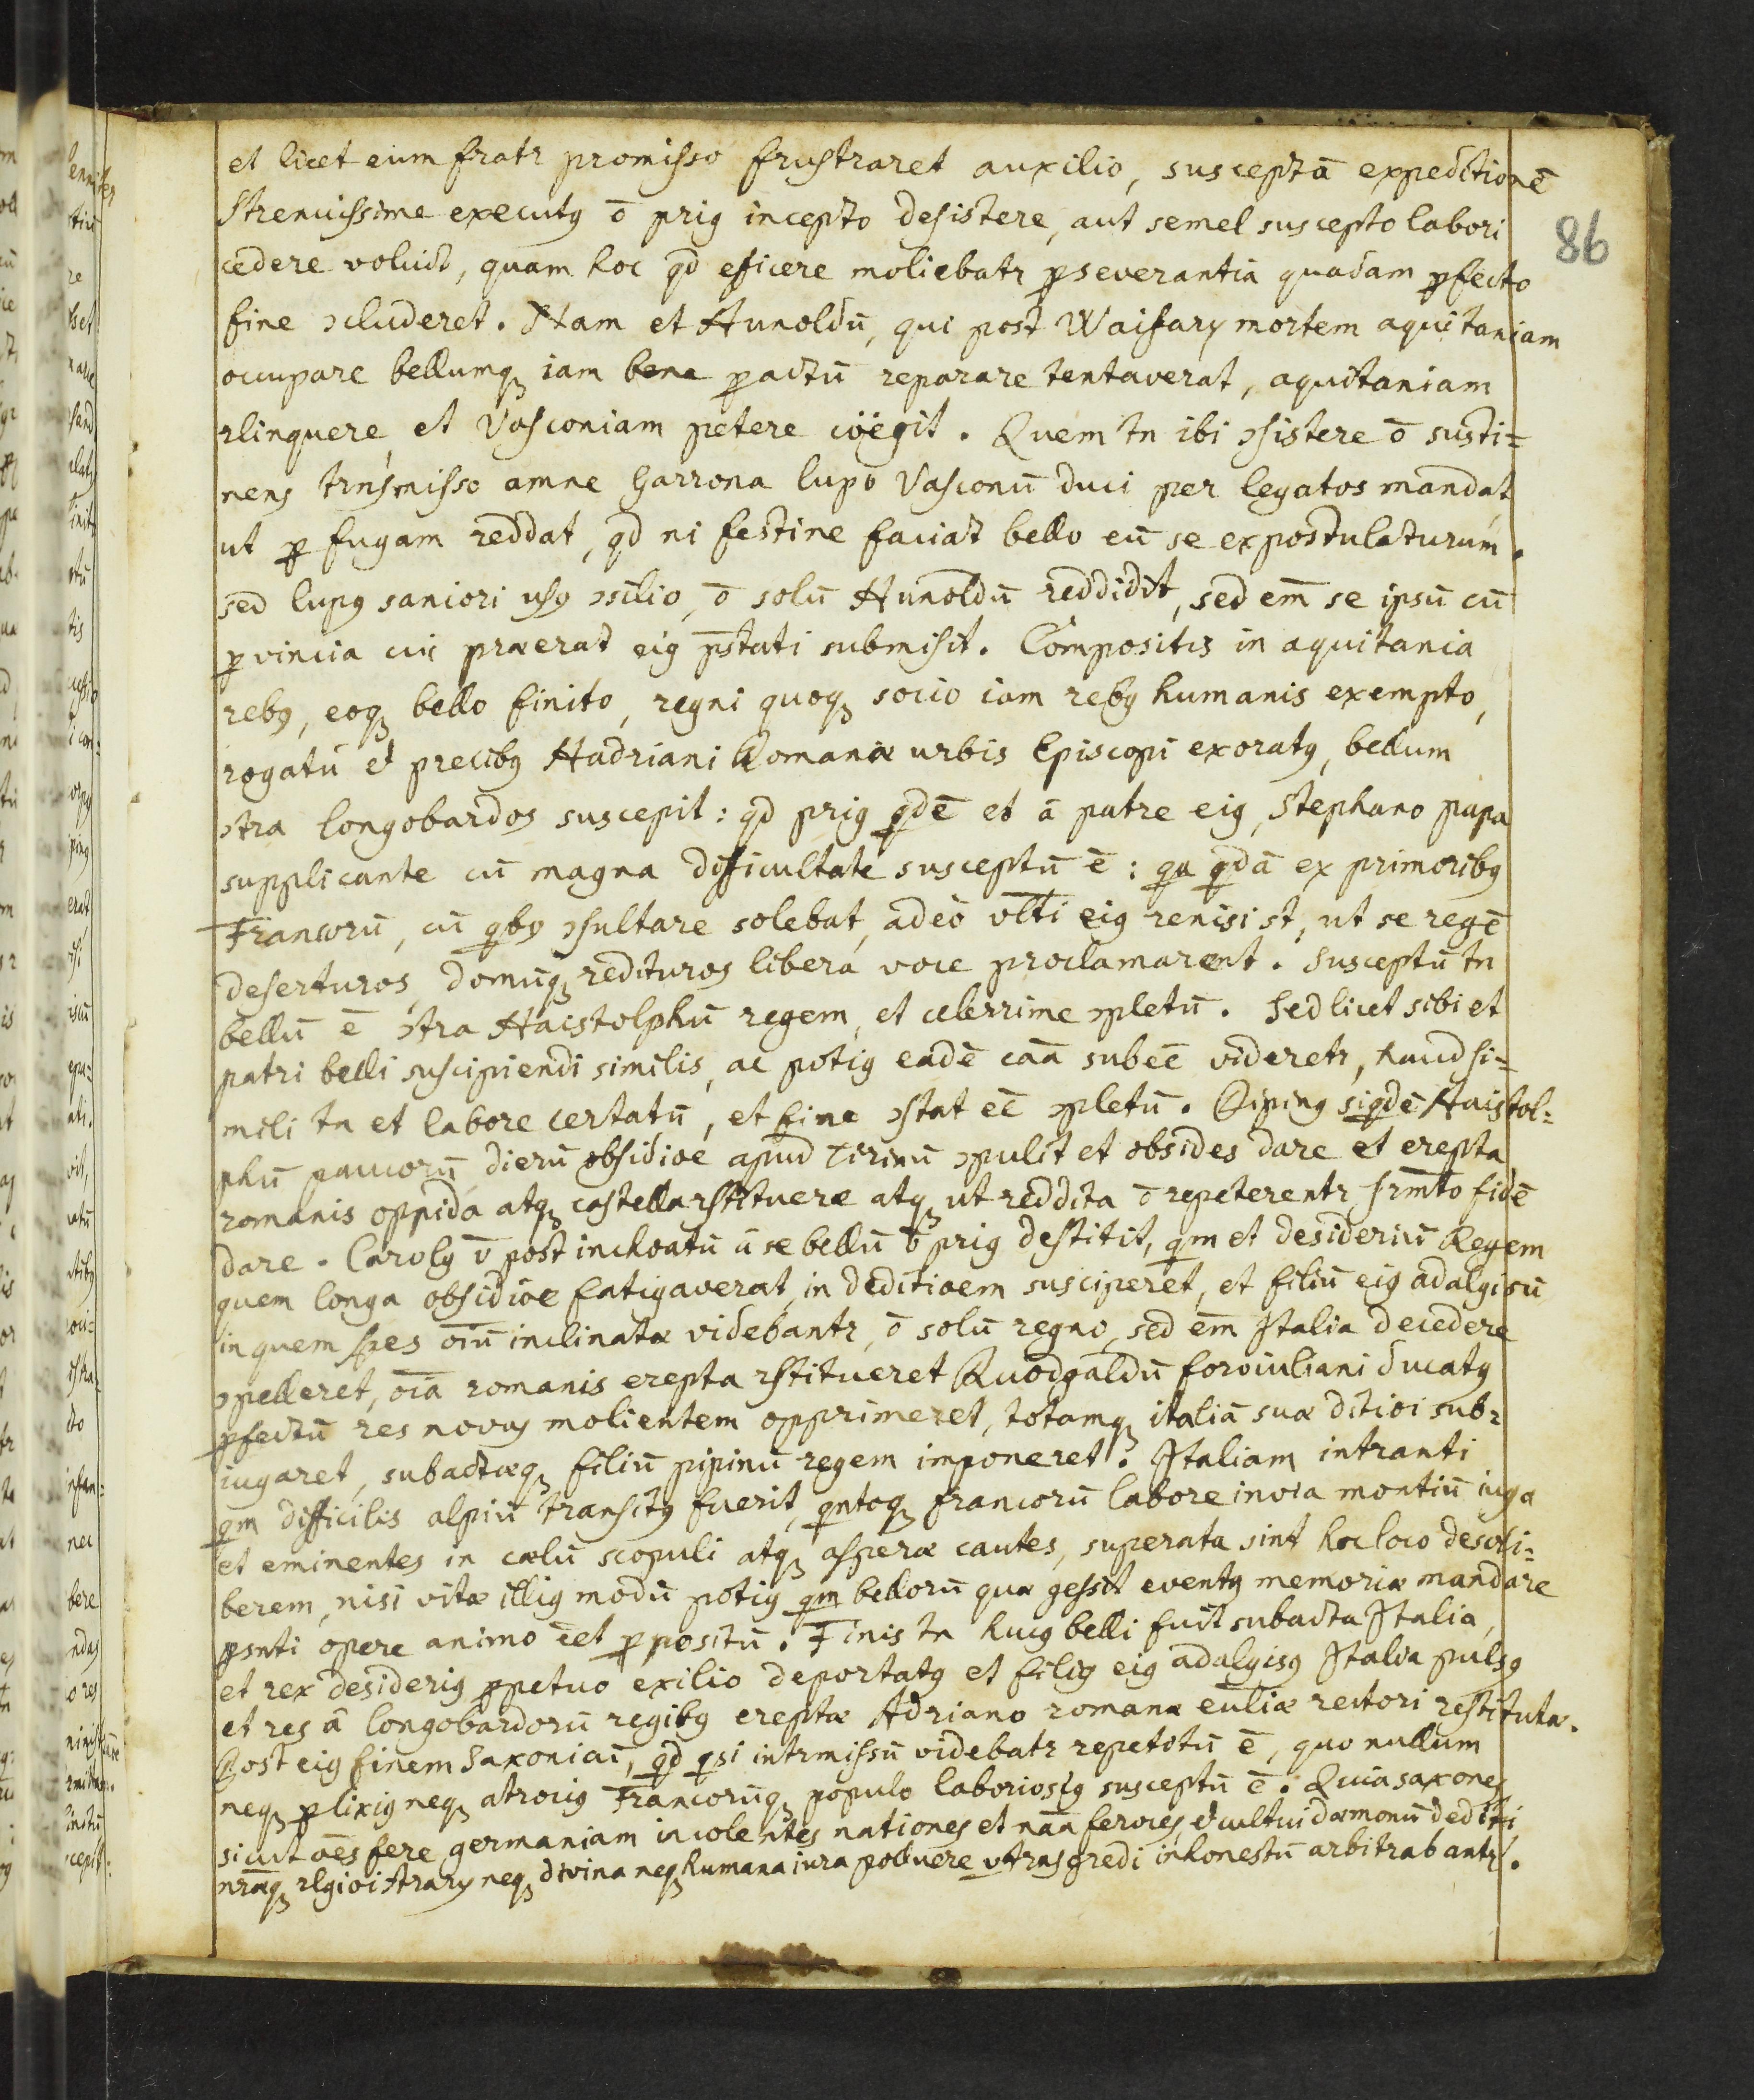 et licet eum fratr promisso frustraret auxilio, susceptā expeditionē
strenuissime executꝯ ō priꝯ incepto desistere, aut semel suscepto labori
86
cedere voluit, quam hoc qd eficere moliebatr ꝑseverantia quadam ꝑfecto
fine ɔcluderet. Nam et Hunoldū, qui post Waifarÿ mortem aquitaniam
occupare bellumqꝫ iam bene ꝑactū reparare tentaverat, aquitaniam
rlinquere, et Vasconiam petere cöegit. Quem tn ibi ɔsistere ō susti=
nens trnsmisso amne Garrona lupo Vasconū duci per legatos mandat
ut ꝑfugam reddat, qd ni festine faciat bello eū se expostulaturum.
sed lupꝯ saniori usꝯ ɔsilio, ō solū Hunoldū reddidit, sed em̄ se ipsū cū
ꝓvincia cui præerat eiꝯ p̄stati submisit. Compositis in aquitania
rebꝯ, eoqꝫ bello finito, regni quoqꝫ socio iam rebꝯ humanis exempto,
rogatū et precibꝯ Hadriani Romanæ urbis Episcopi exoratꝯ, bellum
ɔtra longobardos suscepit: qd priꝯ qdē et ā patre eiꝯ, Stephano papa
supplicante cū magna difficultate susceptū ē: qa qdā ex primoribꝯ
Francorū, cū qbꝯ ɔsultare solebat, adeò vlt̄i eiꝯ renisi st, ut se regē
deserturos, domūqꝫ redituros liberá voce proclamarent. Susceptū tn
bellū ē ɔtra Haistolphū regem, et celerrime ɔpletū. Sed licet sibi et
patri belli suscipiendi similis, ac potiꝯ eadē caā subeē videretr, haud si=
mili tn et labore certatū, et fine ɔstat eē ɔpletū. Pipinꝯ siqdē Haistol=
phū paucorū dierū obsidioe apud Ticinū ɔpulit et obsides dare et erepta
romanis oppida atqꝫ castella rstituere atqꝫ ut reddita ō repeterentr srm̄to fidē
dare. Carolꝯ v̄ post inchoatū ā se bellū ō priꝯ destitit, qm et desideriū Regem
quem longa obsidioe fatigaverat, in deditioem susciperet, et filiū eiꝯ adalgisū
in quem spes oīū inclinatæ videbantr, ō solū regno, sed em̄ Italia decedere
ɔpelleret, oīā romanis erepta rstitueret Ruodgaldū foroiuliani ducatꝯ
pfectū res novas molientem opprimeret, totamqꝫ italiā suæ ditioi sub=
iugaret, subactæqꝫ filiū pipinū regem imponeret. Italiam intranti
qm difficilis alpiū transitꝯ fuerit, qntoqꝫ francorū labore invia montiū iuga
et eminentes in cælū scopuli atqꝫ asperæ cautes, superata sint hoc loco descri=
berem, nisi vitæ illiꝯ modū potiꝯ qm bellorū quæ gessit eventꝯ memoriæ mandare
psnti opere animo eēt ꝓpositū. Finis tn huiꝯ belli fuit subacta Italia,
et rex desideriꝯ ꝑpetuo exilio deportatꝯ et filiꝯ eiꝯ adalgisꝯ Italia pulsꝯ
et res ā longobardorū regibꝯ ereptæ Adriano romanæ eūliæ rectori restitutæ.
Post eiꝯ finem Saxonicū, qd qsi intrmissū videbatr repetitū ē, quo nullum
neqꝫ ꝓlixiꝯ neqꝫ atrociꝯ Francorūqꝫ populo laboriosiꝯ susceptū ē. Quia saxones
sicut oēs fere germaniam incolentes nationes et naā feroces, et cultui dæmonū dediti
nrāqꝫ rlgioi ɔtrarÿ neqꝫ divina neqꝫ humana iura polluere v trnsgredi inhonestū arbitrabantr.